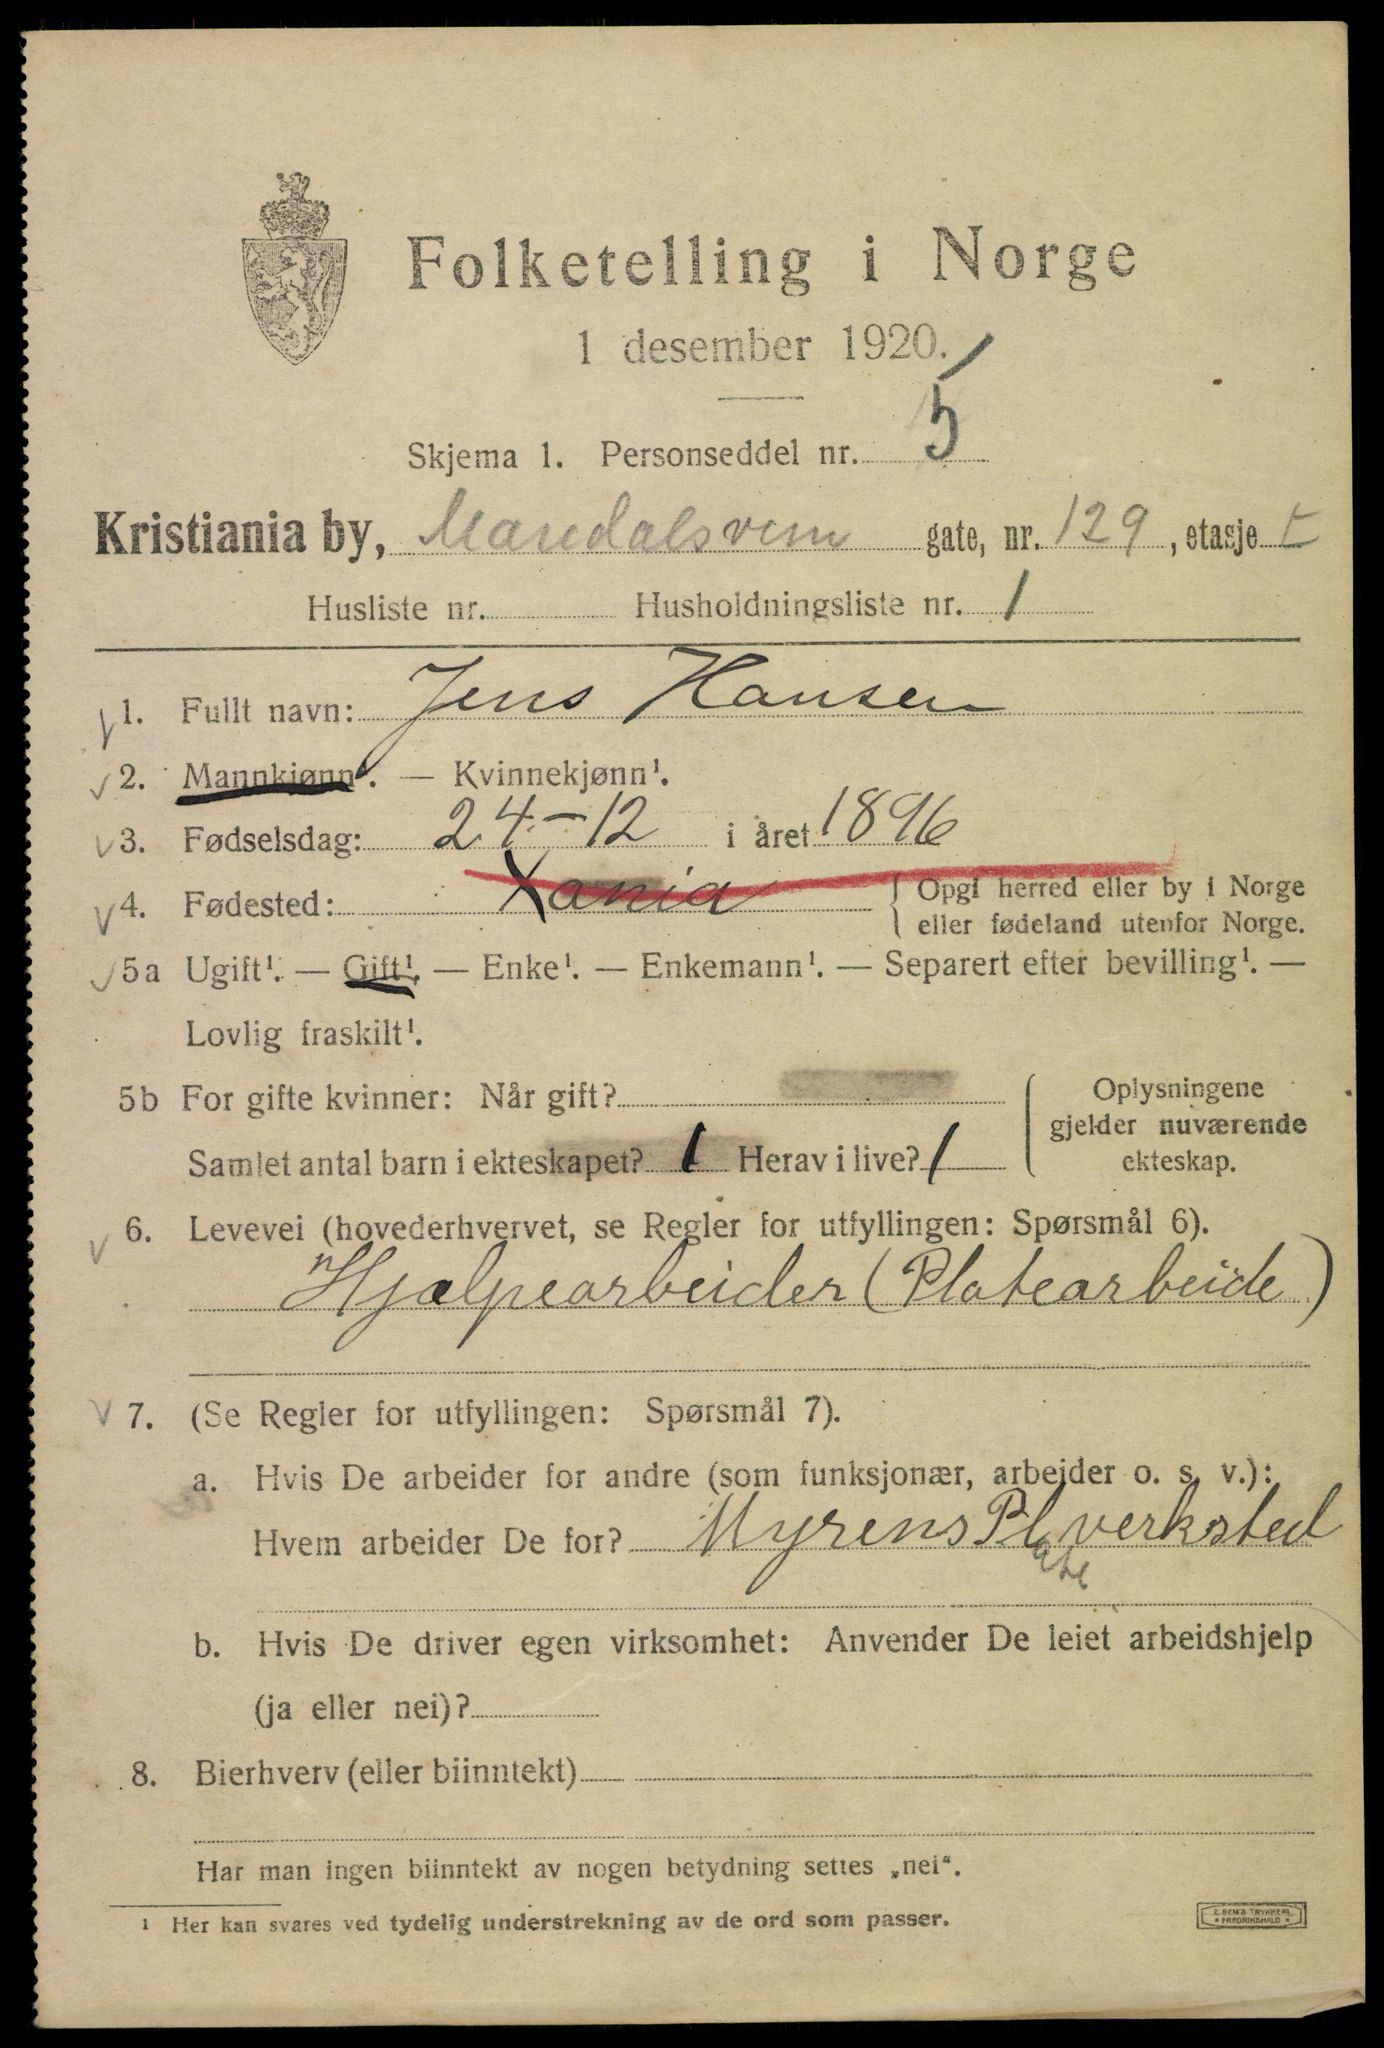 Folketelling i Norge
1 desember 1920.
Skjema 1. Personseddel nr. 5
Kristiania by, Maridalsvein gate, nr. 129, etasje I
Husliste nr. Husholdningsliste nr. 1
1. Fullt navn: Jens Hansen
2. Mannkjønn¹. — Kvinnekjønn¹.
3. Fødselsdag: 24-12 i året 1896
4. Fødested: Xania { Opgi herred eller by i Norge
eller fødeland utenfor Norge.
5a Ugift¹. — Gift¹. — Enke¹. — Enkemann¹. — Separert efter bevilling¹. —
Lovlig fraskilt¹.
5b For gifte kvinner: Når gift? Oplysningene
gjelder nuværende
Samlet antal barn i ekteskapet? 1 Herav i live? 1 ekteskap.
6. Levevei (hovederhvervet, se Regler for utfyllingen: Spørsmål 6).
Hjælpearbeider (Platearbeide)
7. (Se Regler for utfyllingen: Spørsmål 7).
a. Hvis De arbeider for andre (som funksjonær, arbeider o. s. v.):
Hvem arbeider De for? Myrens Pl verksted
ate
b. Hvis De driver egen virksomhet: Anvender De leiet arbeidshjelp
(ja eller nei)?
8. Bierhverv (eller biinntekt)
Har man ingen biinntekt av nogen betydning settes „nei“.
¹ Her kan svares ved tydelig understrekning av de ord som passer.
E. SEM'S TRYKKERI,
* FREDRIKSHALD *